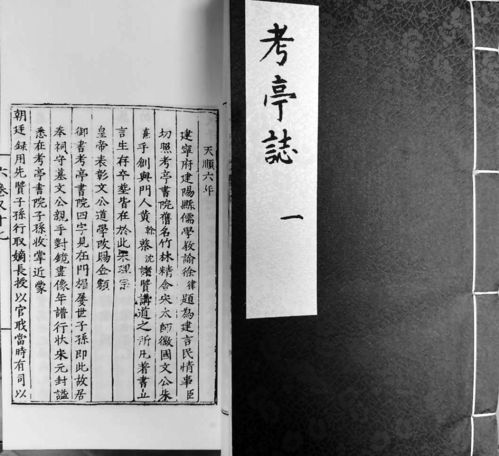 考亭誌
一
天順六年
建寧府建陽縣儒學教諭徐律題為建言民情事臣
切照考亭書院舊名竹林精舍宋太師徽國文公朱
熹手創與門人黃榦蔡沈諸賢講道之所凡著書立
言生存卒塟皆在於此宋理宗
皇帝表彰文公道學改賜金額
御書考亭書院四字見在門楣屢世子孫即此故居
奉祠守墓文公親手對鏡畫像年譜行狀宋元封謚
悉在考亭書院子孫收掌近蒙
朝廷録用先賢子孫行取嫡長授以官職當時有司以
六卷又十七